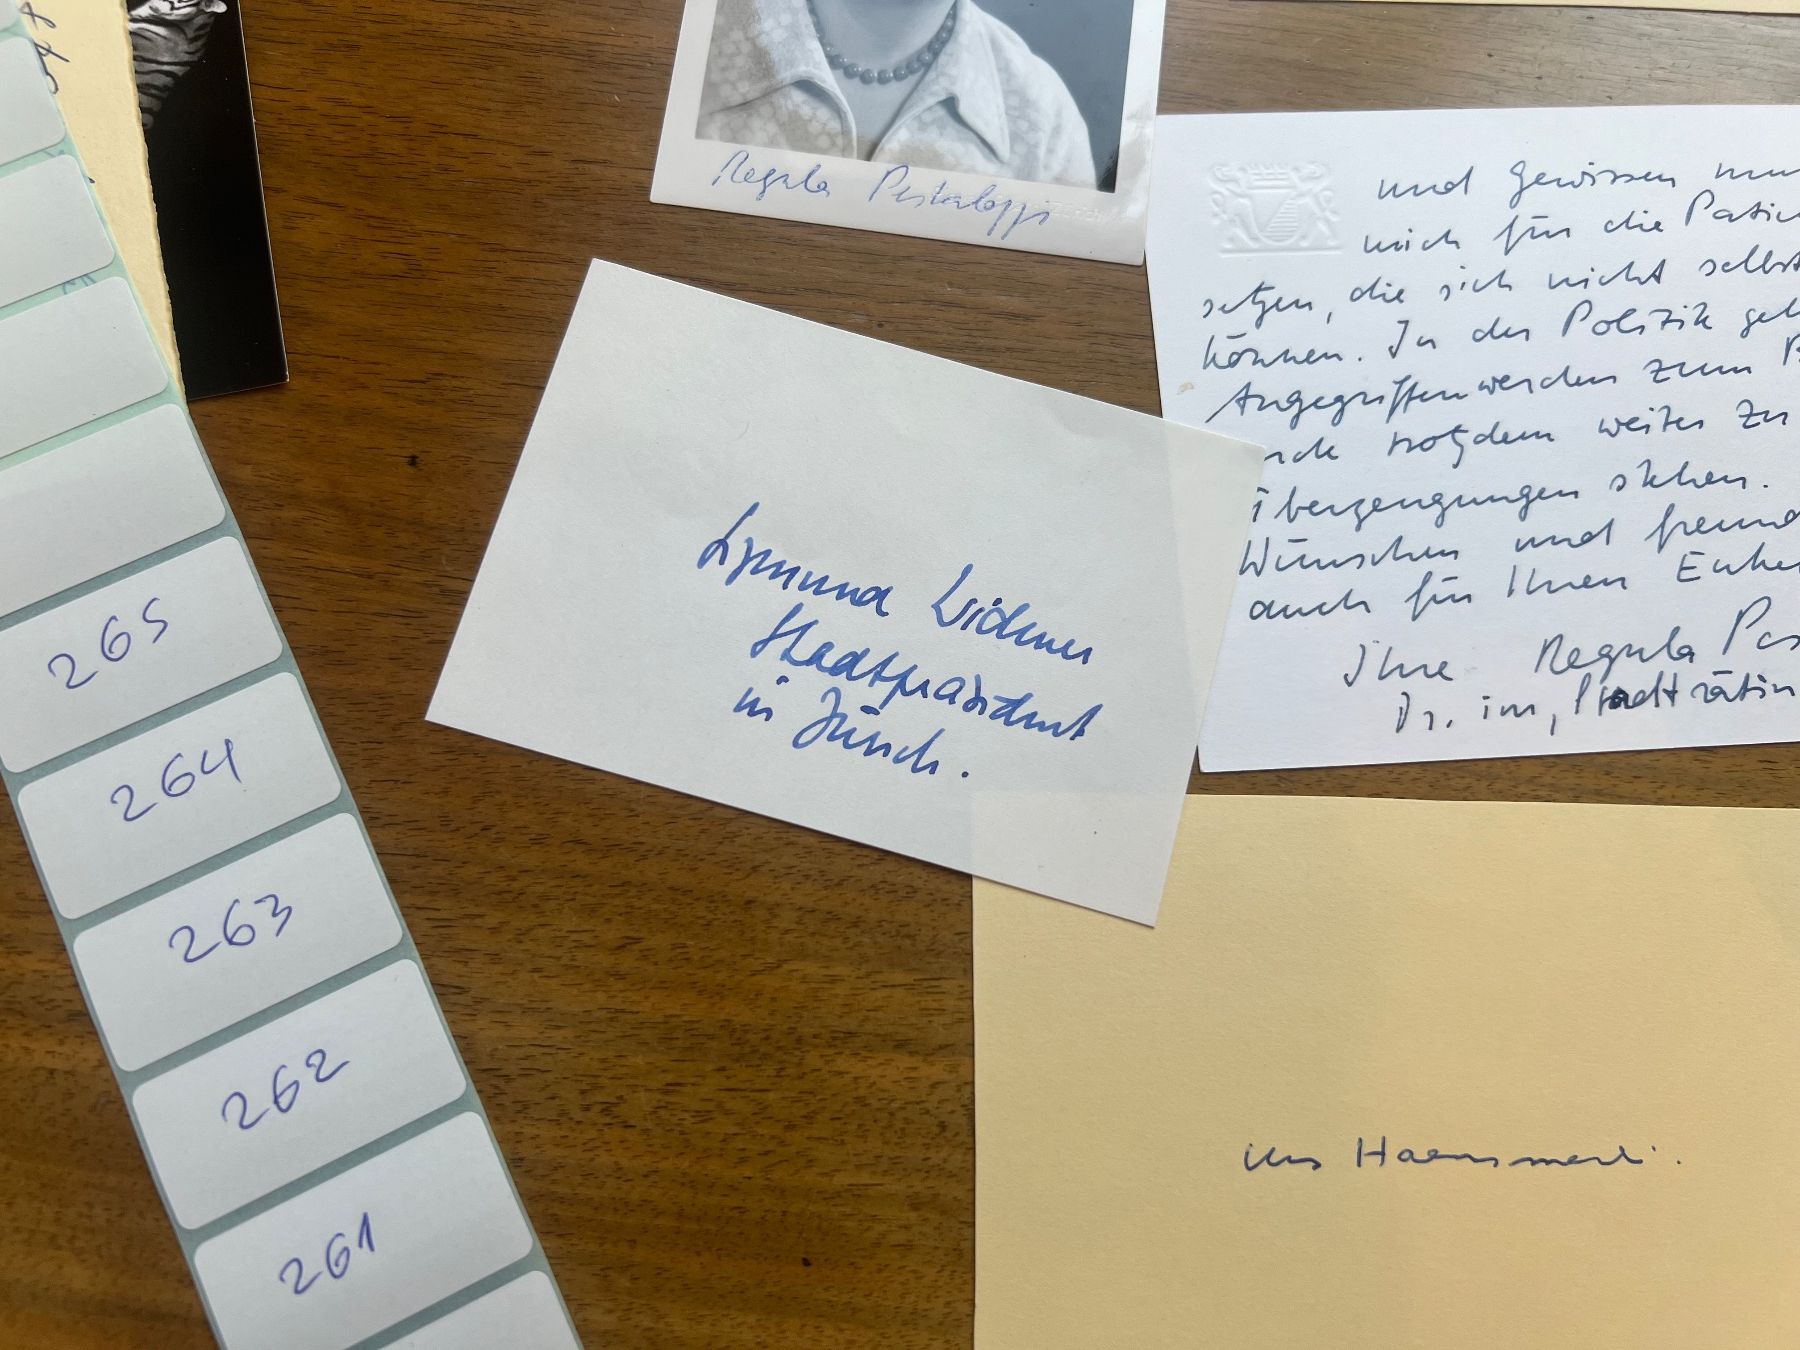 Regula Pestalozzi
und Gewissen
mich für die
setzen, die sich nicht selbst
können. In der Politik
Angegriffenwerden zum
trotzdem weiter zu
Überzeugungen stehen.
Wünschen und
auch für Ihren
Ihre Regula
Dr. iur, Stadträtin
Sigmund Widmer
Stadtpräsident
in Zürich.
Urs
265
264
263
262
261